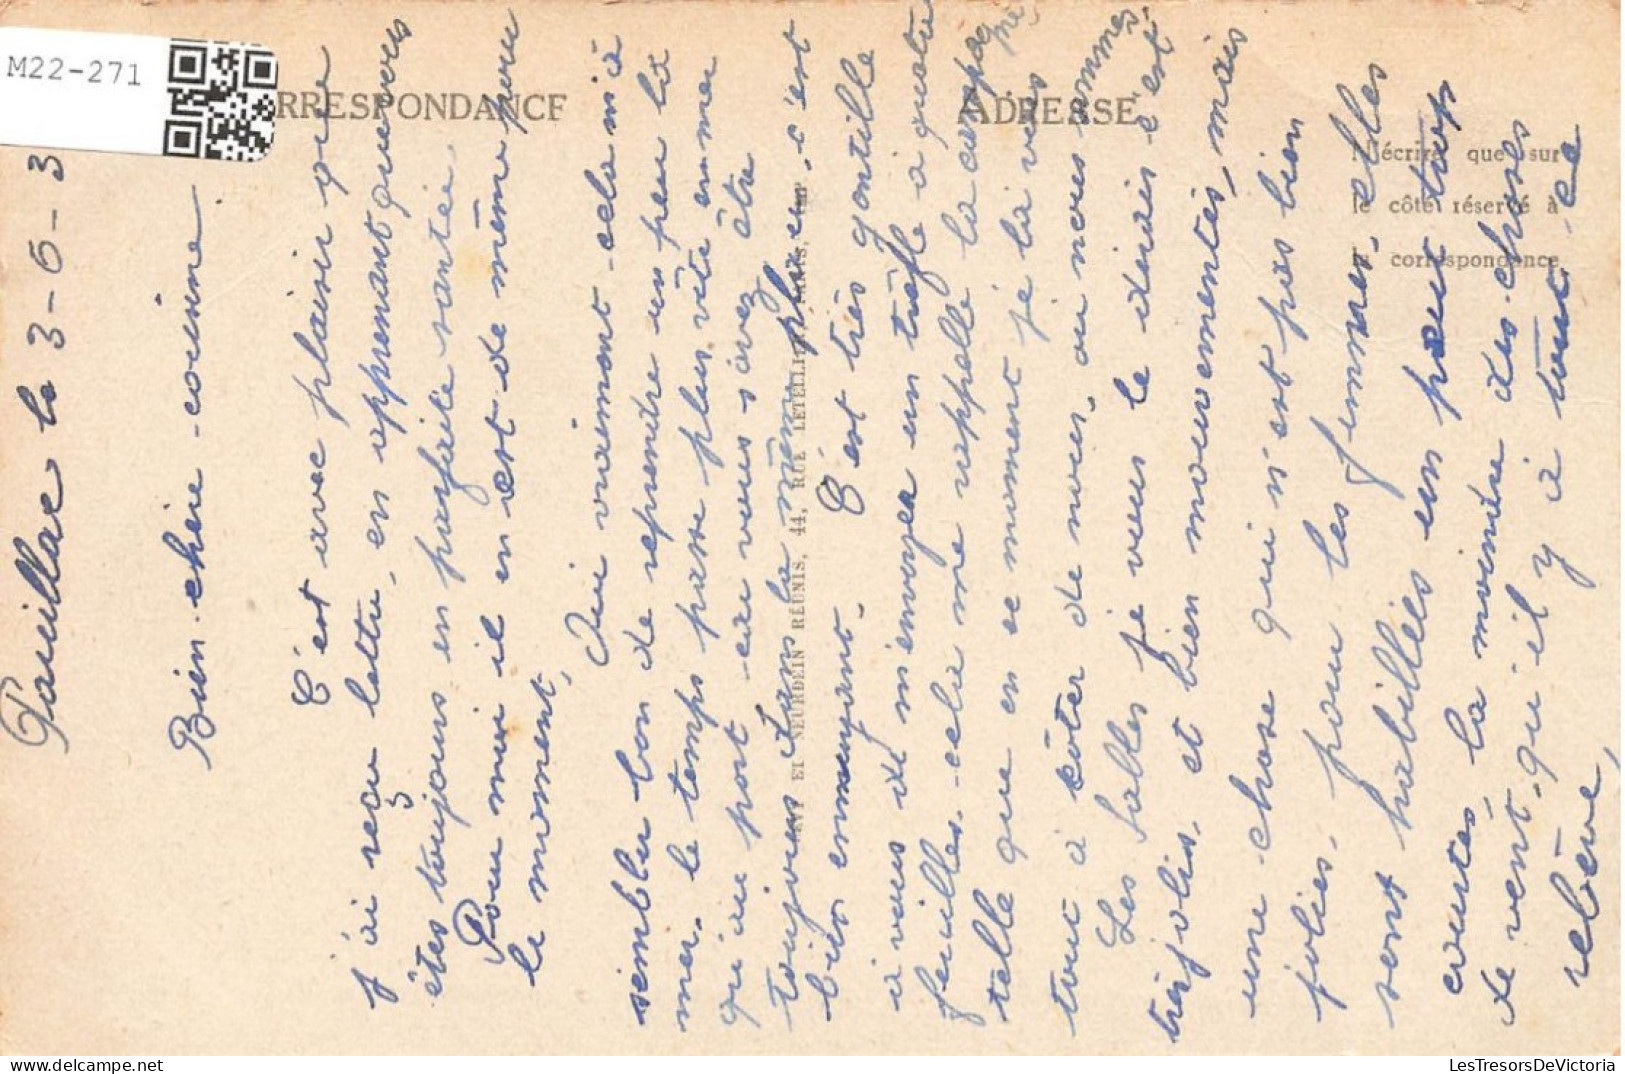 M22-271
CORRESPONDANCE
ADRESSE
N'écrire que sur
le côté réservé à
la correspondance
LEVY ET NEURDEIN RÉUNIS, 44, RUE LETELLIER, PARIS, IMP
Pauillac le 3-6-3
Bien chère cousine
C'est avec plaisir que
j'ai reçu lettre, en apprenant que vous
êtes toujours en parfaite santée.
Pour moi il en est de même pour
le moment.
Oui vraiment cela m'a
sembler bon de reprendre un peu la
mer. le temps passe plus vite en mer
qu'au port car vous savez être
toujours dans la même place, c'est
bien ennuyant.
C'est très gentille
à vous de m'envoyer un trèfle à quatre
feuilles. cela me rappelle la campagne
telle que en se moment je la vois
tout à côter de nous, où nous sommes.
Les balles je vous le dirais c'est
très jolis, et bien mouvementés, mais
une chose qui n'est pas bien
jolies, pour les femmes, elles
sont habillées un peut trop
courtes, la moindre des choses
de vent, qu'il y à tout ce
relève,
LesTresorsDeVictoria